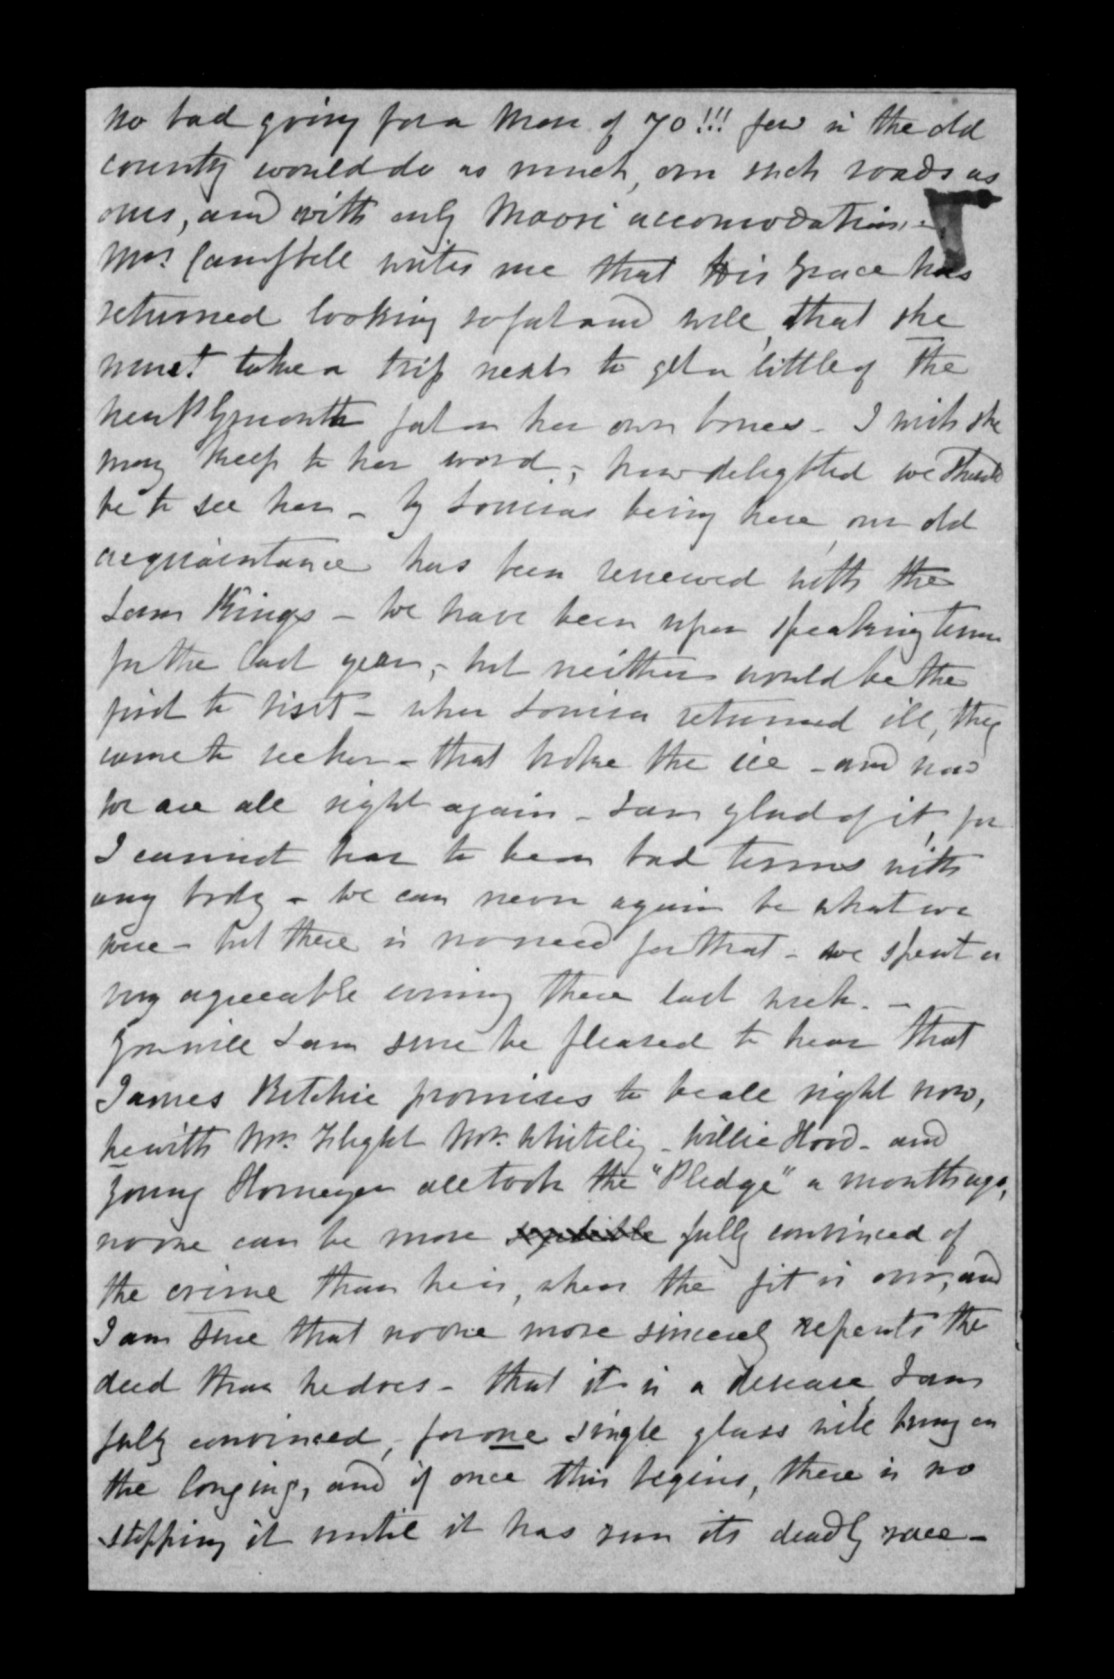 no bad going for a man of 70!!! few in the old
country would do as much, over such roads as
ours, and with only Maori accomodation.
Mrs. Campbell writes me that His Grace has
returned looking so fat and well, that she
must take a trip next to get a little of the
New Plymouth fat on her own bones - I wish she
may keep to her word, how delighted we should
be to see her - by Louisas being here, our old
acquaintance has been renewed with the
Sam Kings - we have been upon speaking terms
for the last year, but neither would be the
first to visit - when Louisa returned ill, they
came to see her - that broke the ice - and now
we are all right again - I am glad of it, for
I cannot bear to be on bad terms with
any body - we can never again be what we
were - but there is no need for that - we spent a
very agreeable evening there last week. -
You will I am sure be pleased to hear that
James Ritchie promises to be all right now,
he with Mr. Flight Mr. Whiteley - Willie Hood - and
young Homeyer all took the "Pledge" a month ago,
no one can be more fully convinced of
the crime than he is, when the fit is over, and
I am sure that no one more sincerely repents the
deed than he does - that it is a disease I am
fully convinced, for one single glass will bring on
the longing, and if once this begins, there is no
stopping it until it has run its deadly race -